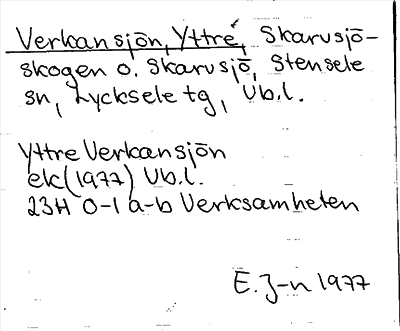 Verkansjön, Yttre, Skarvsjö-
skogen o. Skarvsjö, Stensele
sn, Lycksele tg, Vb.l.
Yttre Verkansjön
ek(1977) Vb.l.
23H 0-1 a-b Verksamheten
E. J-n 1977